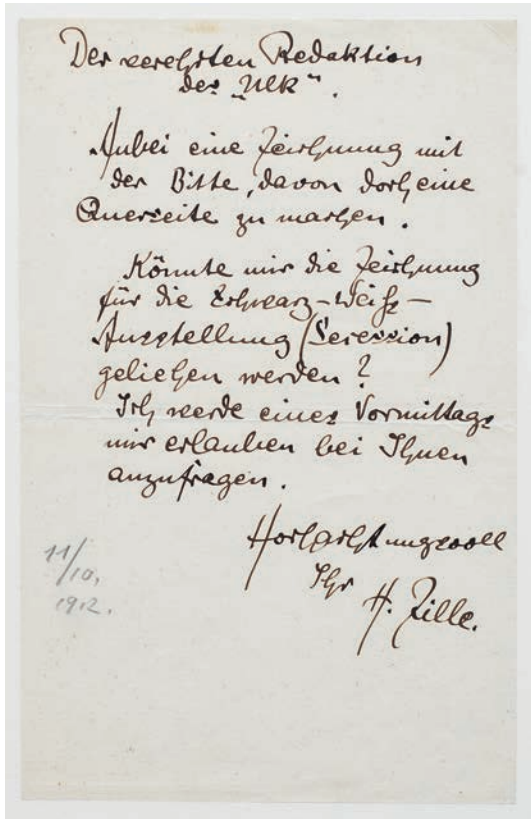 Der verehrten Redaktion
des „Ulk".
Anbei eine Zeichnung mit
der Bitte, davon doch eine
Querseite zu machen.
Könnte mir die Zeichnung
für die Schwarz-Weiß-
Ausstellung (Secession)
geliehen werden?
Ich werde eines Vormittags
mir erlauben bei Ihnen
anzufragen.
Hochachtungsvoll
Ihr
H. Zille.
11/10.
1912.